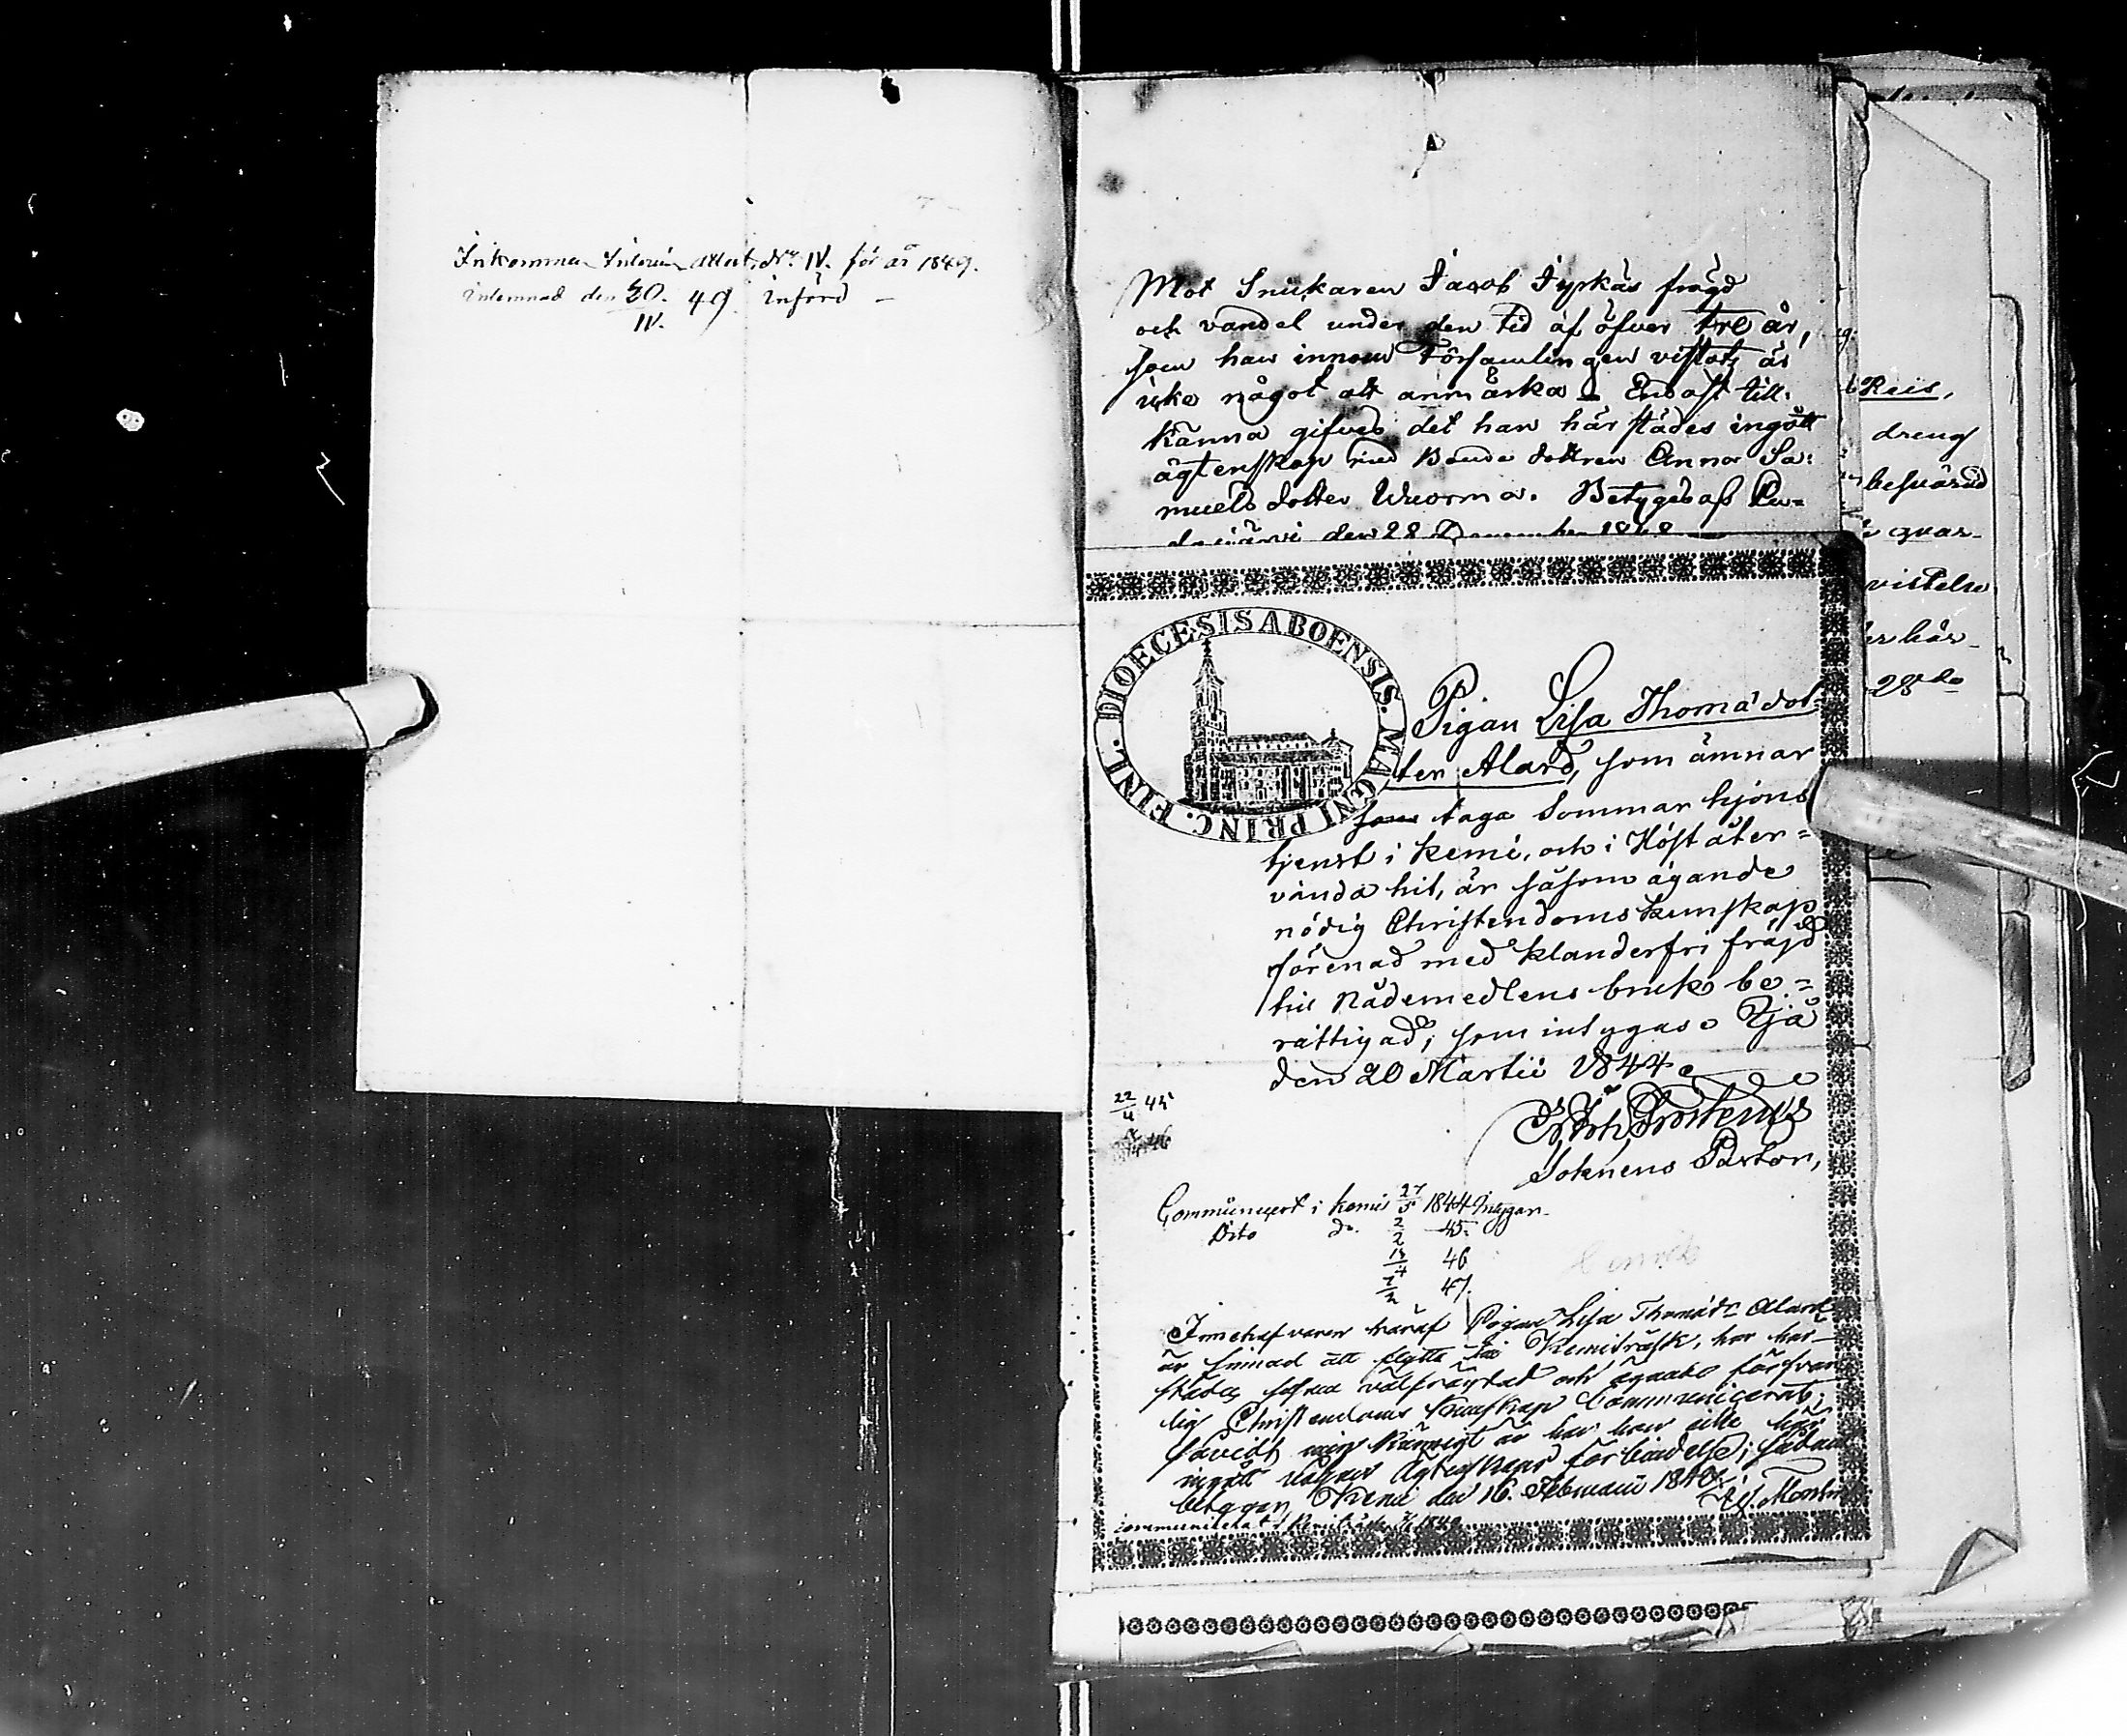 Inkommen Interims Attest, Nr IV. för år 1849.
inlemnad den 20. 49. införd –
IV.
Mot Snickaren Jacob Tyrkäs frägd
och vandel under den tid af öfver tre år,
som han innom Församlingen vistats är
icke något att anmärka – Endast till-
känna gifves det han härstädes ingått
ägtenskap med Bonde dottren Anna Sa-
muels dotter Wuorma. Betygas af Pu-
dasjärvi den 28 December 1848
Reis,
dreng
besvärad
qvar-
vistelse
här-
28de
DIOECESIS ABOENSIS. MAGNI PRINC. FINL.
Pigan Lisa Thomædot-
ter Alard, som ämnar
som taga Sommar hjons
tjenst i Kemi, och i Höst åter-
vända hit, är såsom ägande
nödig Christendoms kunskap
förenad med klanderfri fräjd
till Nådemedlens bruk be-
rättigad; som intygas. Ijå
den 20 Martii 1844.
Frosterus
Soknens Pastor,
22/4 45
46
Communicert i Kemi 27/5 1844 intygar
Dito do. 2/2 45.
13/4 46
7/2 47.
Innehafvaren häraf Pigan Lisa Thomædr Alard
är sinnad att flytta till Kemiträsk, har här-
städes såsom välfrägdad och ägande försvar-
lig Christendoms kunskap Communicerat;
såvidt mig kunnigt är har hon icke här
ingått någon Ägtenskaps förbindelse; sådant
betygar, Kemi den 16. Februarii 184
communicerat i Kemiträsk 1849